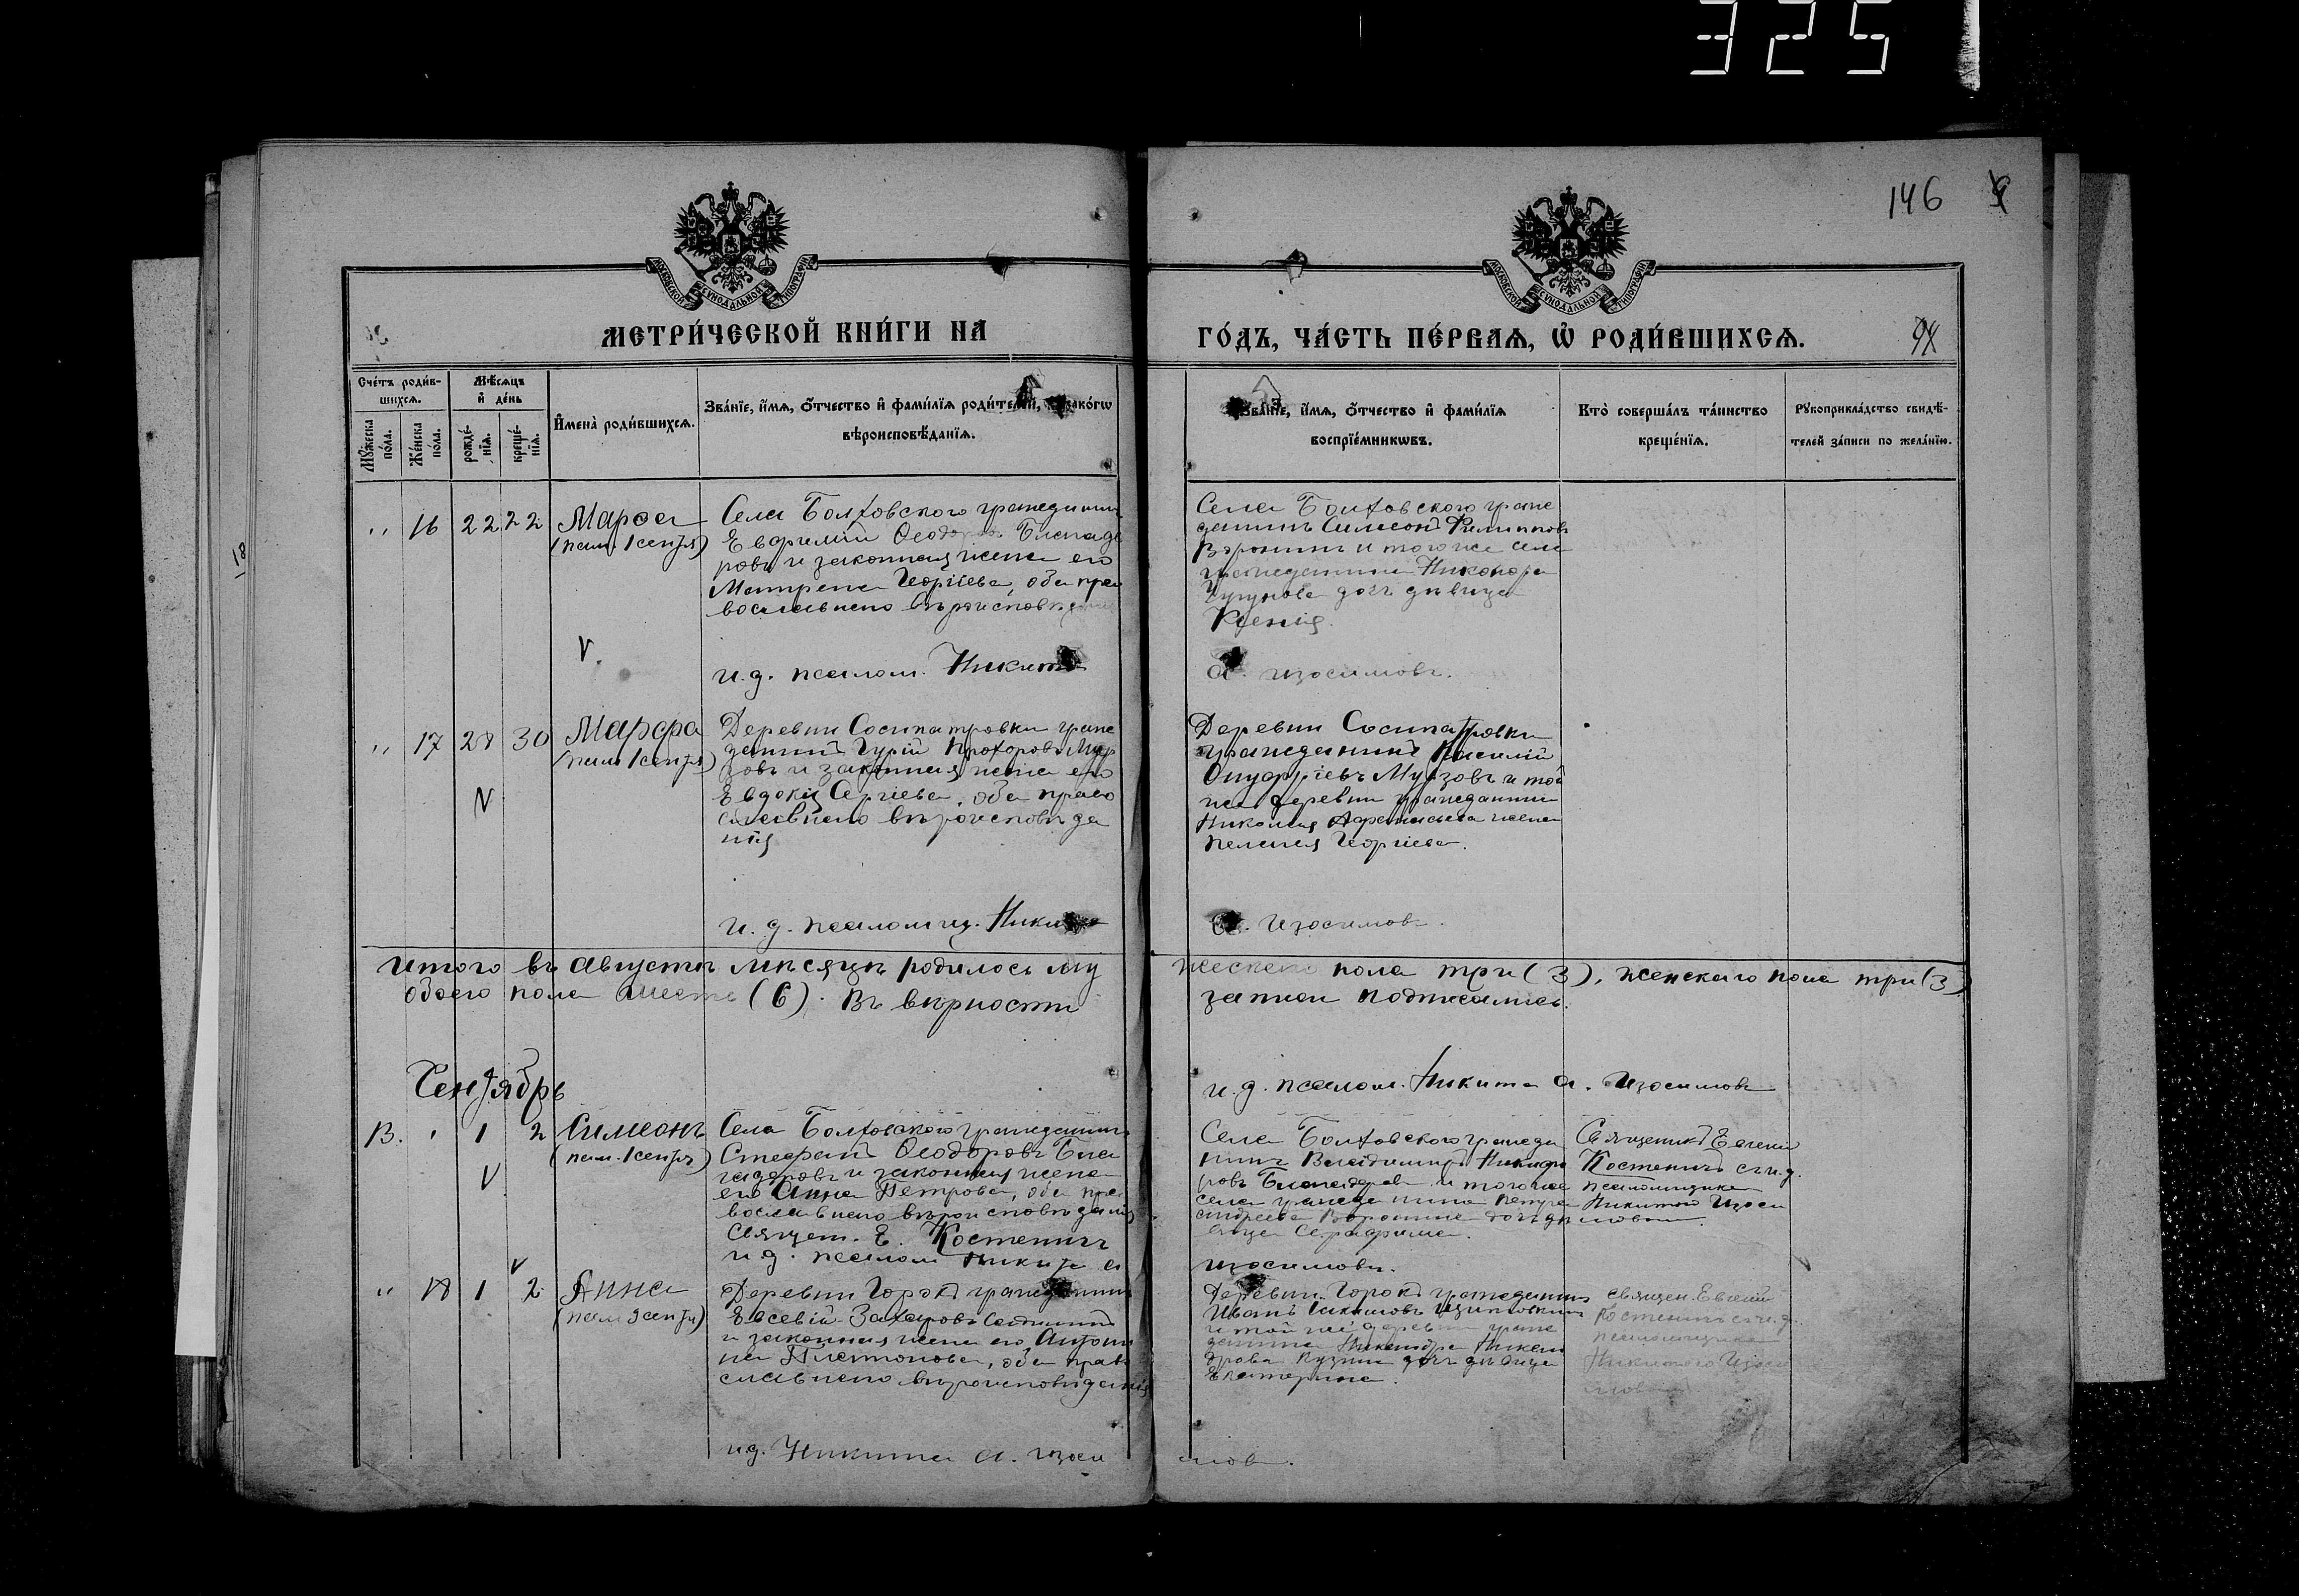 325
146
МОСКОВСКОЙ СѴНОДАЛЬНОЙ ТИПОГРАФІИ
МОСКОВСКОЙ СѴНОДАЛЬНОЙ ТИПОГРАФІИ
МЕТРИ́ЧЕСКОЙ КНИ́ГИ НА
ГО́ДЪ, ЧА́СТЬ ПЕ́РВАѦ, Ѡ҆ РОДИ́ВШИХСѦ.
Сче́тъ роди́в-
шихсѧ.
Мꙋ́жеска по́ла.
Же́нска по́ла.
Мѣ́сѧцъ
и҆ де́нь
рожде́-
нїѧ.
креще́-
нїѧ.
И҆мена̀ роди́вшихсѧ.
Зва́нїе, и҆́мѧ, ѻ҆́тчество и҆ фами́лїѧ роди́телей,
вѣроисповѣ́данїѧ.
Зва́нїе, и҆́мѧ, ѻ҆́тчество и҆ фами́лїѧ
воспрїе́мникѡвъ.
Кто̀ соверша́лъ та́инство
креще́нїѧ.
Рꙋкоприкла́дство свидѣ́-
телей за́писи по жела́нїю.
" 16 22 22 Марѳа
(пам. 1 сентя)
Села Болховского гражданинъ
Евфимій Ѳеодоровъ Благода
ровъ и законная жена его
Матрена Георгіева, оба пра
вославнаго вѣроисповѣданія
и.д. псалом. Никита
Села Болховского граж
данинъ Симеонъ Филипповъ
Воронинъ и того же села
гражданина Никонора
дочь дѣвица
Ксенія.
А. Изосимовъ.
" 17 28 30 Марфа
(пам 1 сентя)
Деревни Сосипатровки граж
данинъ Гурій Прохоровъ Мур
зовъ и законная жена его
Евдокія Сергіева, оба право
славнаго вѣроисповѣда
нія
и.д. псаломщ. Никита
Деревни Сосипатровки
гражданинъ Василій
Онуфріевъ Мурзовъ и той
же деревни гражданина
Николая Афанасьева жена
Пелагія Георгіева.
А. Изосимовъ.
Итого въ августѣ мѣсяцѣ родилось му
жескаго пола три (3), женскаго пола три (3)
обоего пола шесть (6). Въ вѣрности
записи подписались.
и.д. псалом. Никита А. Изосимовъ
Сентябрь
13. " 1 2 Симеонъ
(пам. 1 сентя)
Села Болховского гражданинъ
Стефанъ Ѳеодоровъ Бла
гадаровъ и законная жена
его Анна Петрова, оба пра
вославнаго вѣроисповѣданія
Священ. Е. Костеничъ
и д. псалом Никита А
Села Болховского гражда
нинъ Владимиръ Никифо
ровъ Благадаровъ и того же
села гражданина Петра
Андреева Воронина дочь дѣ
вица Серафима.
Изосимовъ.
Священникъ Евгеній
Костеничъ съ и.д.
псаломщика
Никитою Изоси
мовымъ.
" 18 1 2 Анна
(пам 3 сентя)
Деревни Горокъ гражданинъ
Евсевій Захаровъ
и законная жена его Антони
на Платонова, оба право
славнаго вѣроисповѣданія
и.д. Никита А. Изоси
мовъ.
Деревни Горокъ гражданинъ
Иванъ
и той же деревни граж
данина Никандра Никан
дрова Кузина дочь дѣвица
Екатерина.
Священ. Евгеній
Костеничъ съ и.д.
псаломщика
Никитою Изоси
мовымъ